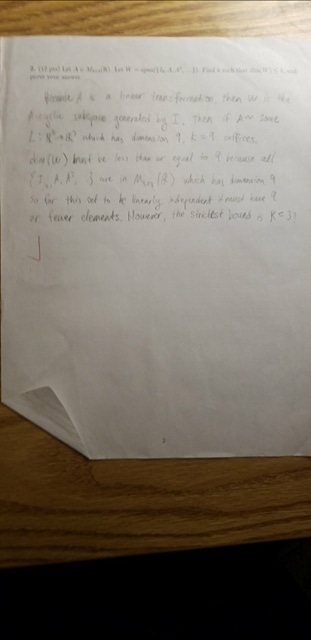 2. (10 pts) Let A ∈ M₃ₓ₃(ℝ). Let W = span{I₃, A, A², ...}. Find k such that dim(W) ≤ k, and
prove your answer.
Because A is a linear transformation, then W is the
A-cyclic subspace generated by I. Then if A~ some
L: ℝ³→ℝ³ which has dimension 9, k = 9 suffices.
dim(W) must be less than or equal to 9 because all
{I₃, A, A², } are in M₃ₓ₃(ℝ) which has dimension 9
so for this set to be linearly independent it must have 9
or fewer elements. However, the strictest bound is K = 3!
2